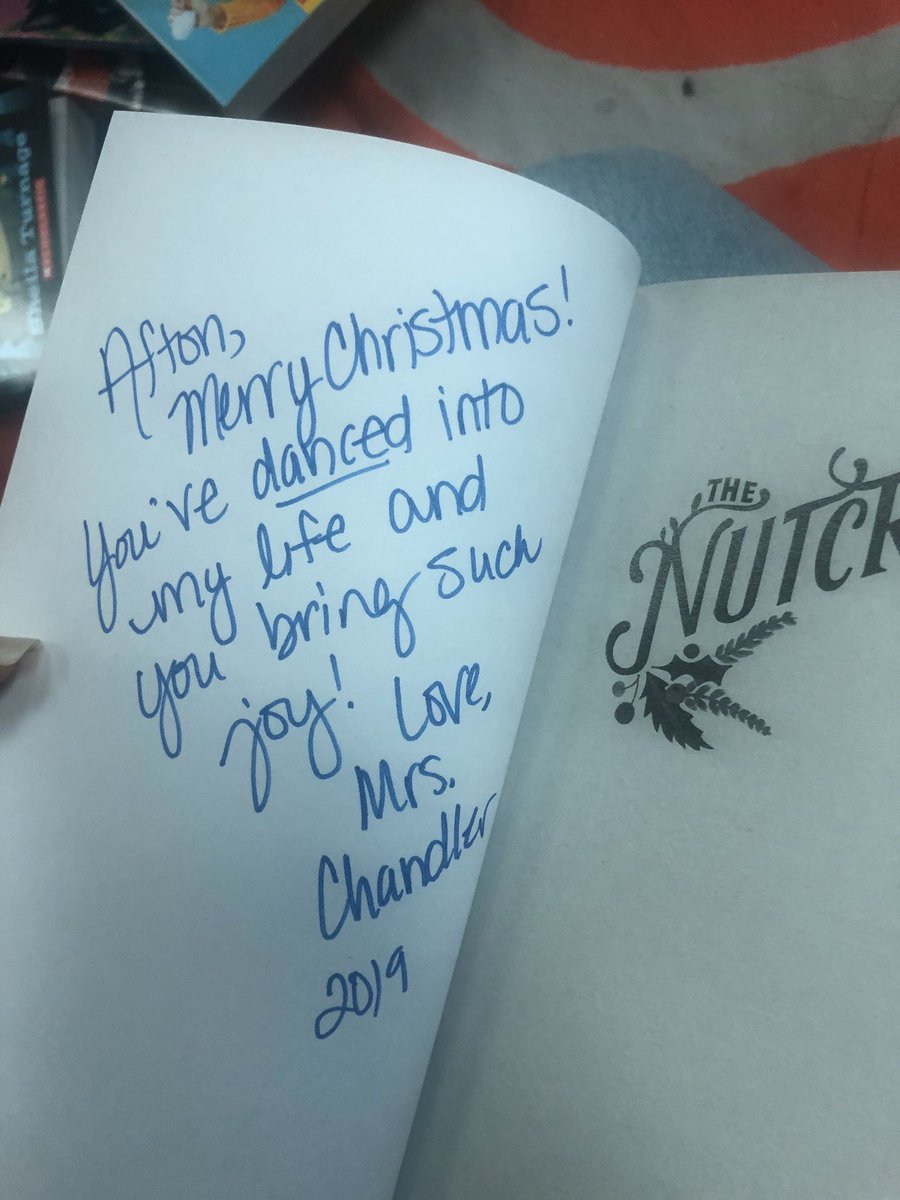 Afton,
Merry Christmas!
You've danced into
my life and
you bring such
joy! Love,
Mrs.
Chandler
2019
THE
NUTCR